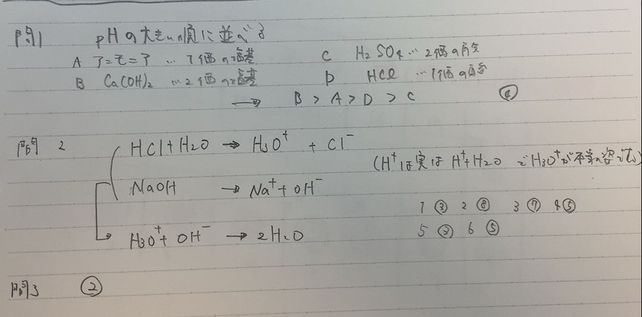 問1 pHの大きい順に並べる
A アンモニア … 1価の塩基 C H₂SO₄ … 2価の酸
B Ca(OH)₂ … 2価の塩基 D HCl … 1価の酸
→ B > A > D > C ④
問2 HCl + H₂O → H₃O⁺ + Cl⁻
(H⁺は実は H⁺+H₂O でH₃O⁺が
NaOH → Na⁺ + OH⁻
H₃O⁺ + OH⁻ → 2H₂O
1 ③ 2 ⑧ 3 ⑦ 4 ⑤
5 ③ 6 ⑤
問3 ②